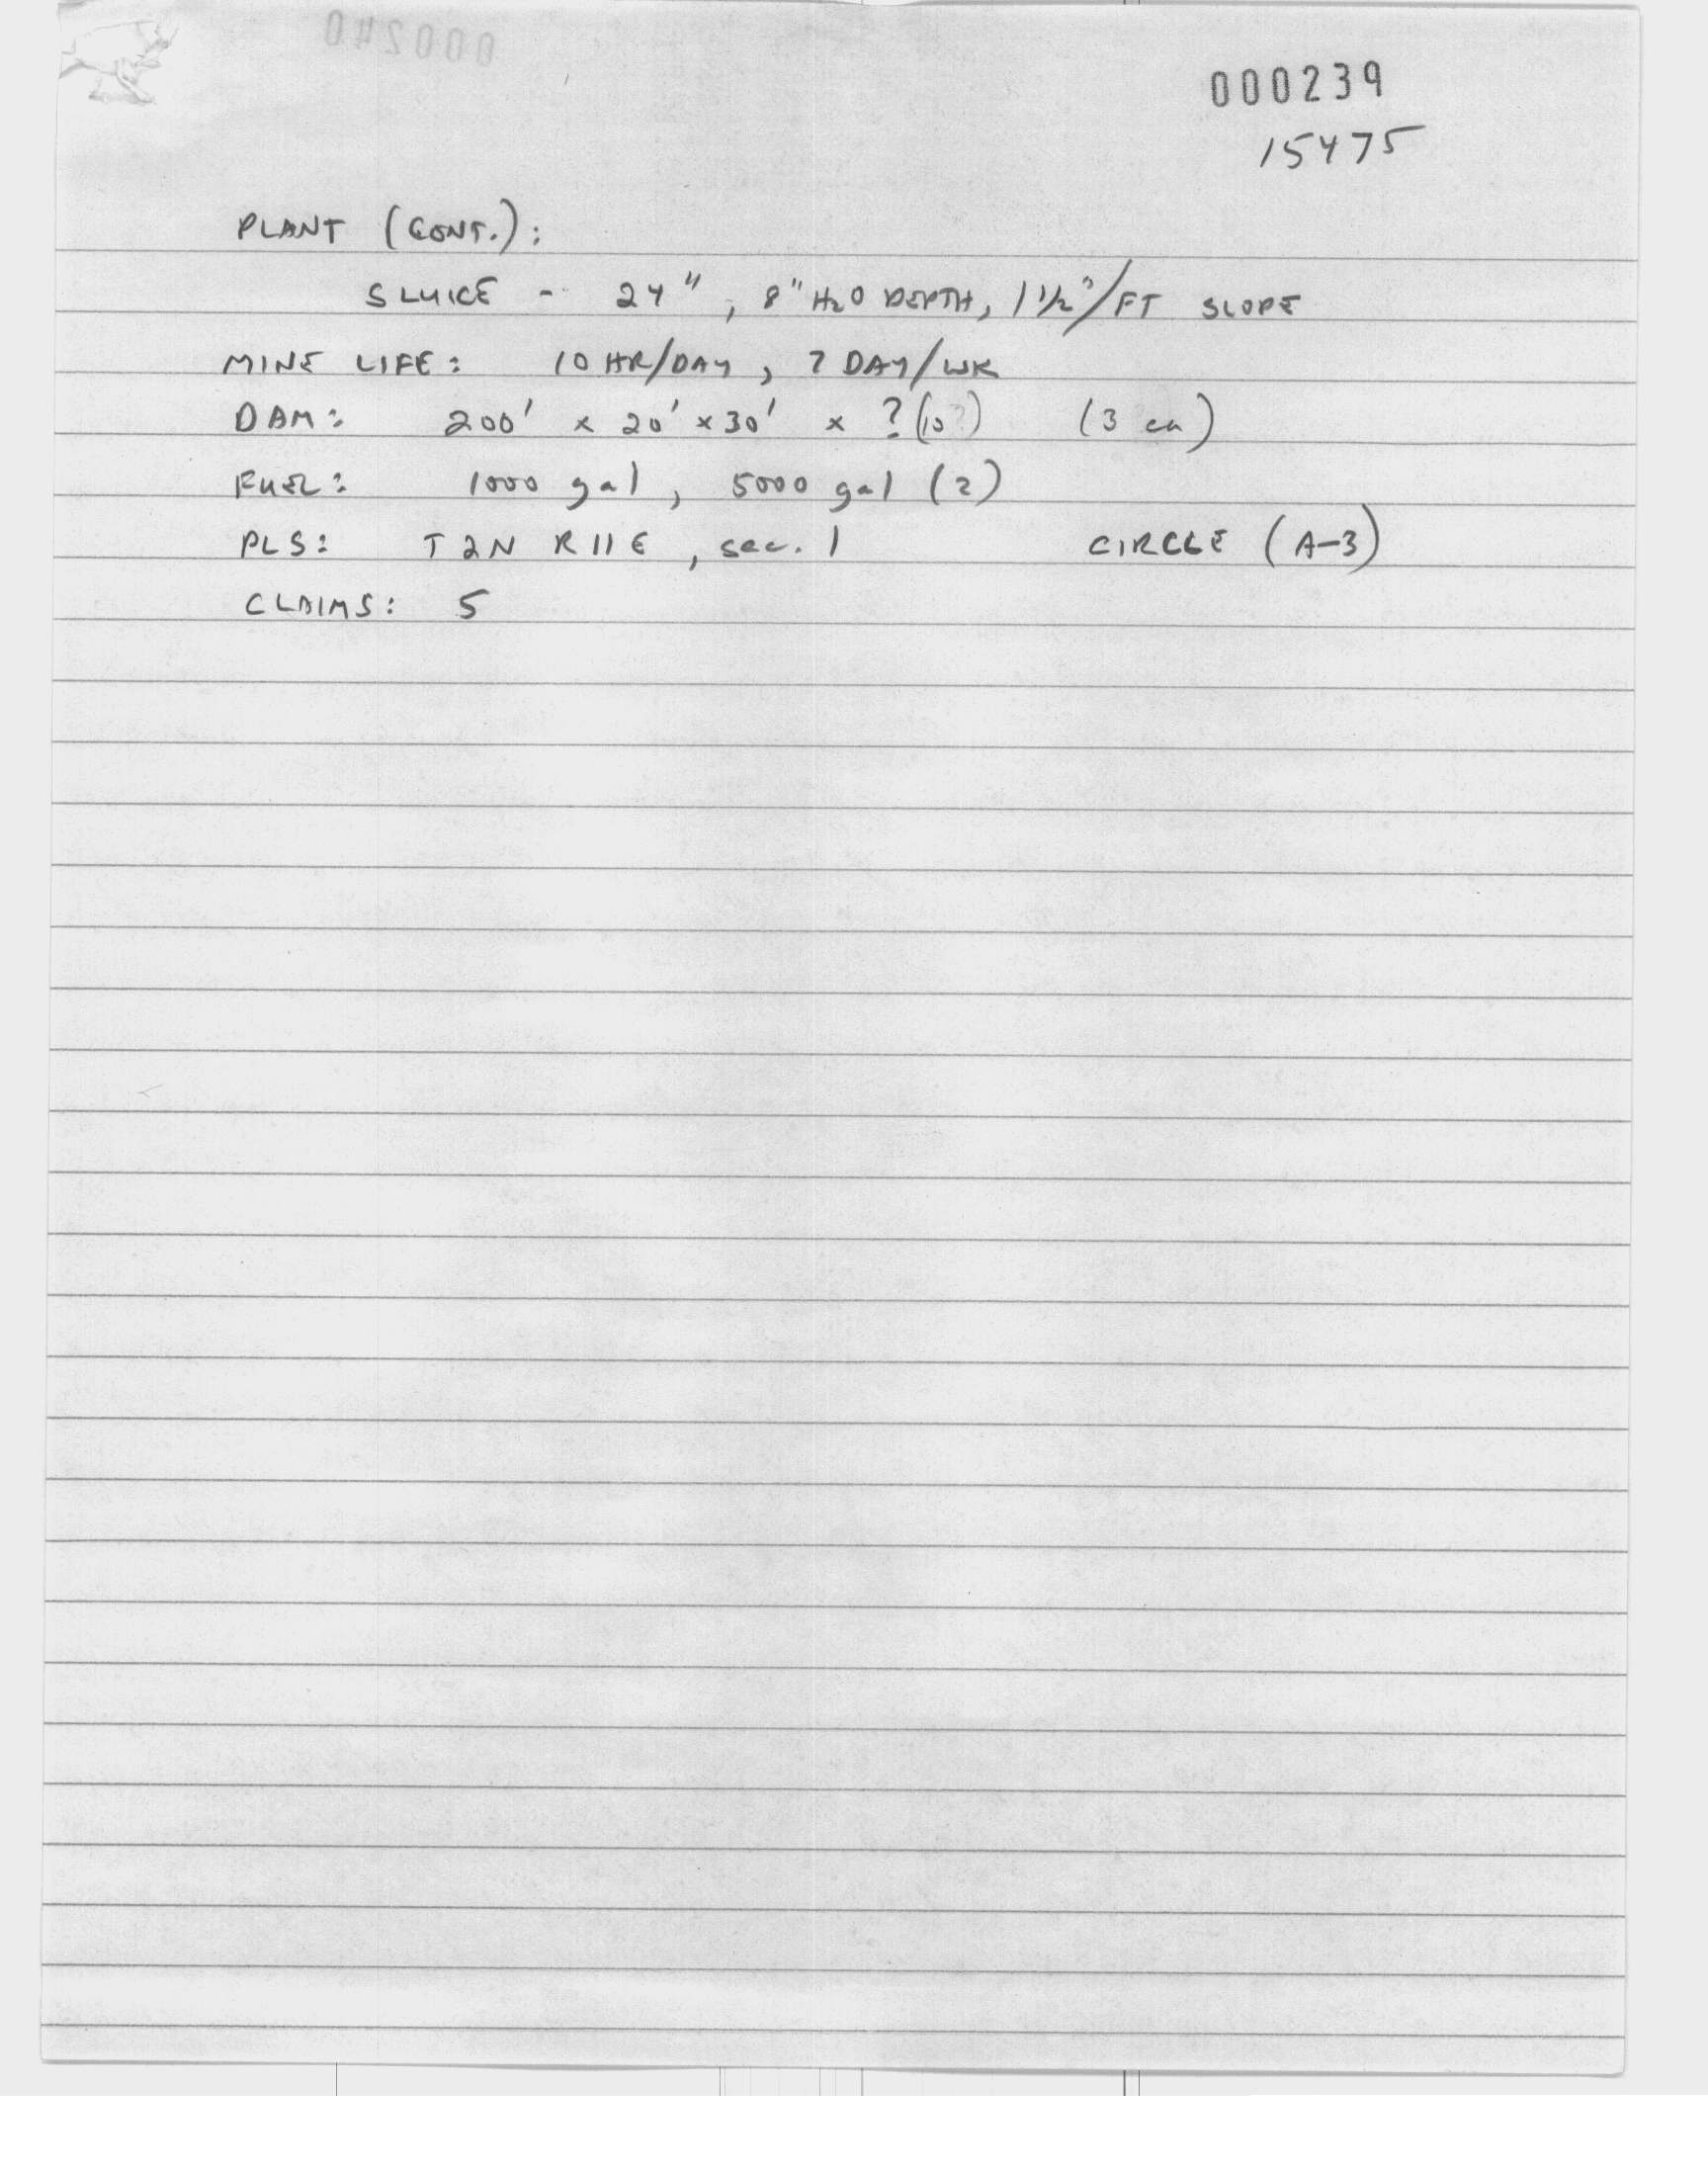 000240
000239
15475
PLANT (CONT.):
SLUICE - 24", 8" H2O DEPTH, 1 1/2"/FT SLOPE
MINE LIFE: 10 HR/DAY, 7 DAY/WK
DAM: 200' x 20' x 30' x ? (10?) (3 ea)
FUEL: 1000 gal, 5000 gal (2)
PLS: T2N R11E, sec. 1 CIRCLE (A-3)
CLAIMS: 5